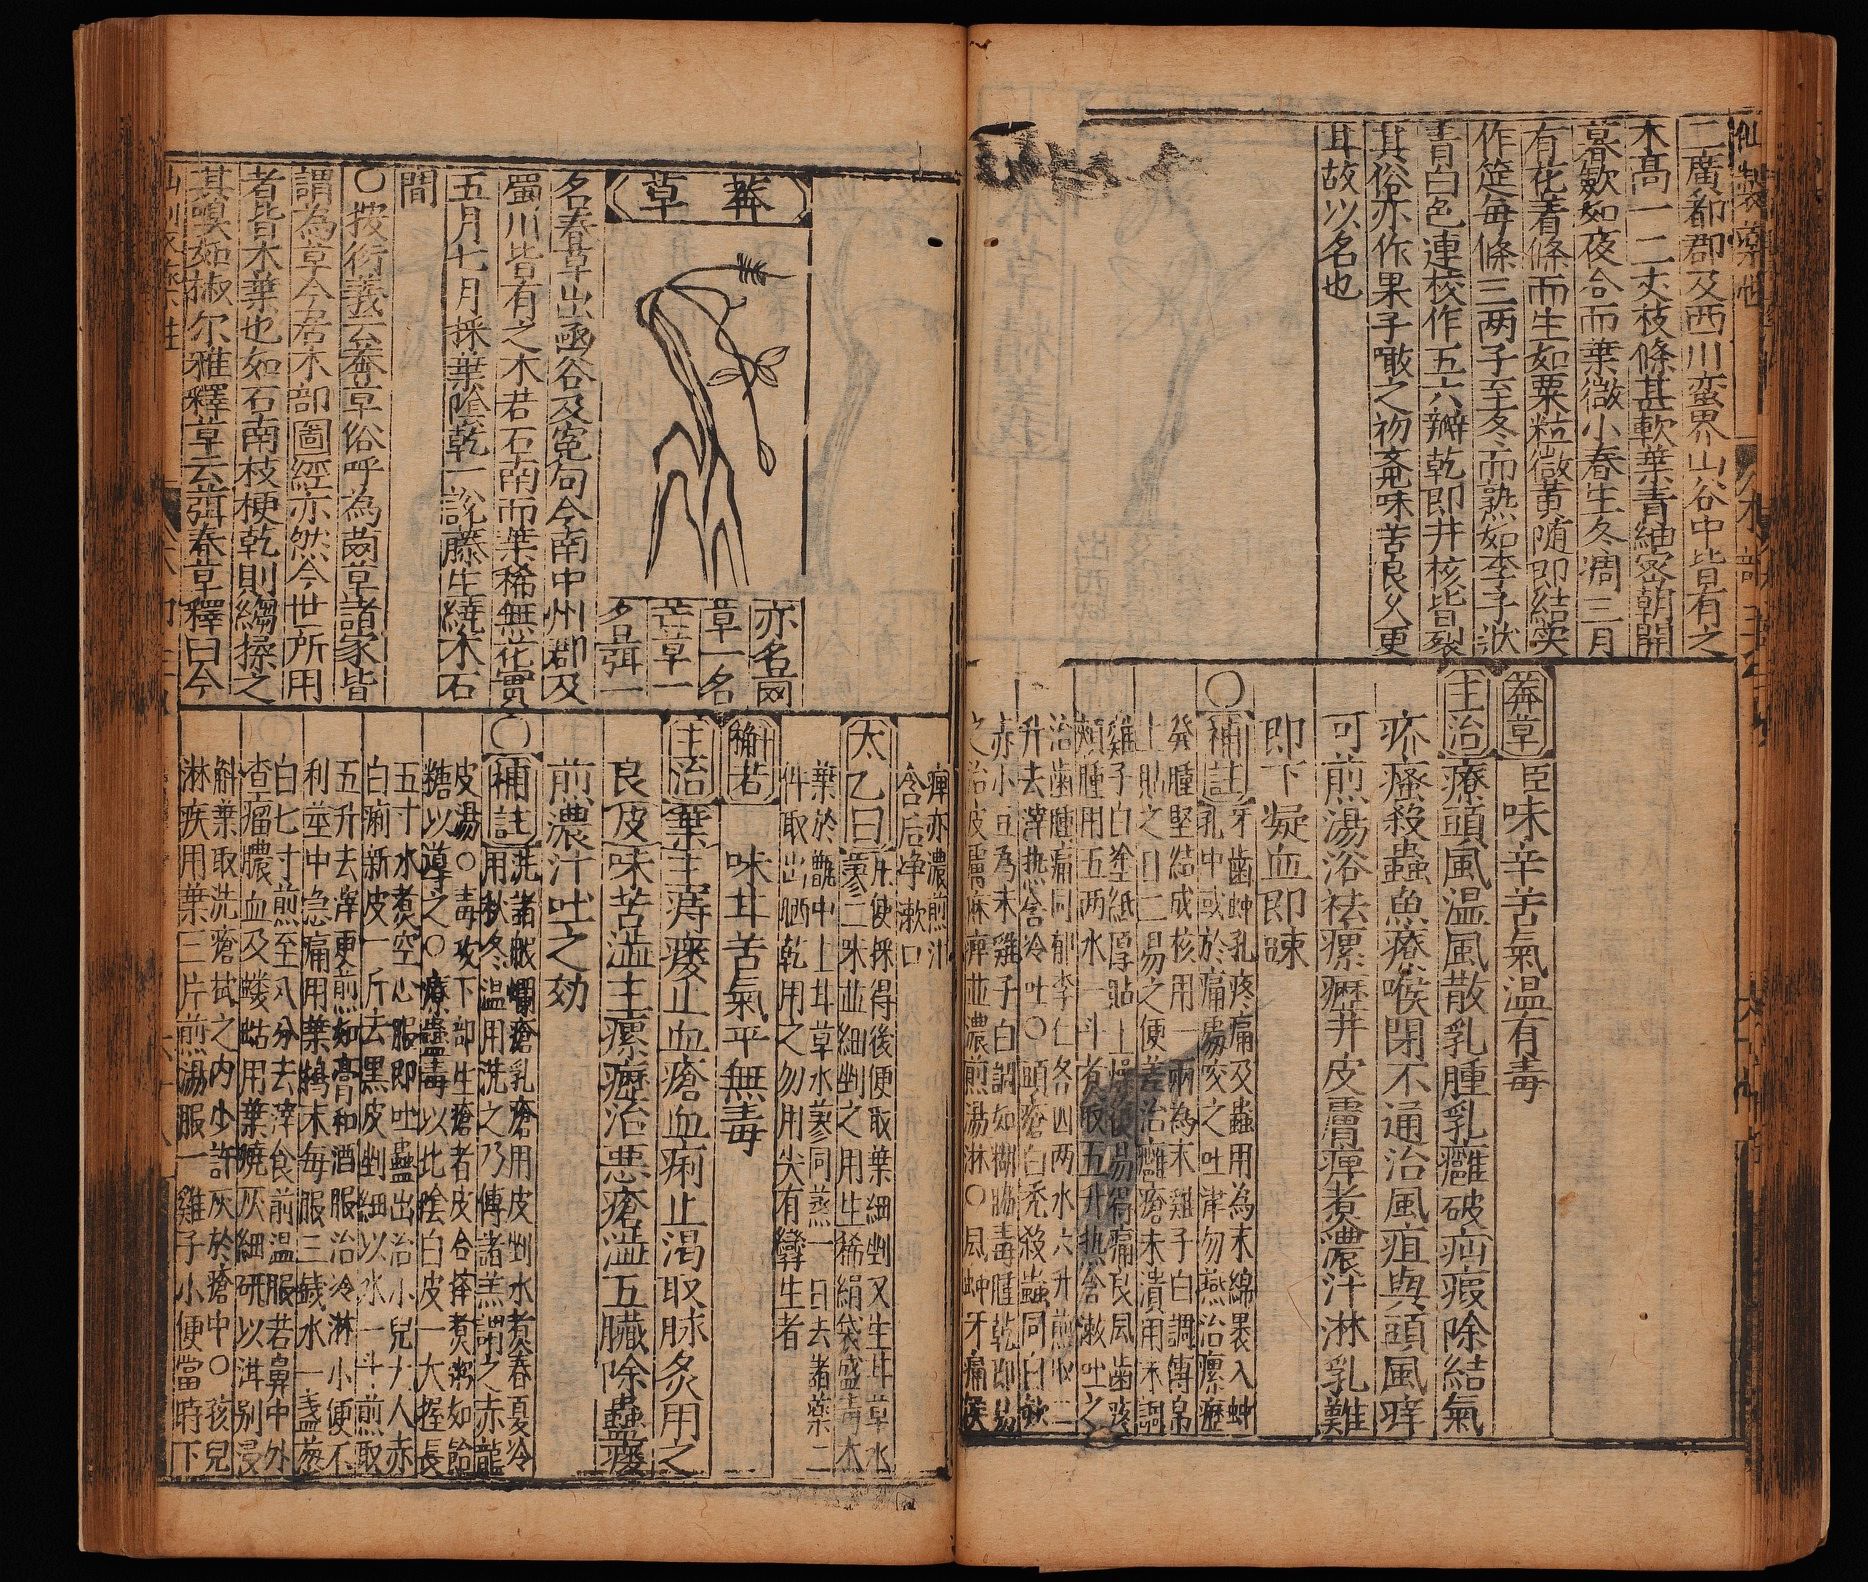 二廣都郡及西川蛮界山谷中皆有之
木高一二丈枝條甚軟葉青紬宻朝開
暮歛如夜合而葉微小春生冬凋三月
有花着條而生如粟粒微黃随即結实
作莛每條三两子至冬而熟如李子狀
青白色連核作五六瓣乾即井核皆裂
其俗亦作果子噉之初亝味苦良久更
耳故以名也
莽草 臣味辛苦氣温有毒
主治 療頭風温風散乳腫乳癰破疝瘕除結氣
疥瘙殺蟲魚療喉閉不通治風疽與頭風痒
可煎湯浴袪瘰癧井皮膚痺煮濃汁淋乳難
即下凝血即踈
〇補註 牙齒蚛孔疼痛及蟲用為末綿褁入蚛
乳中或於痛處咬之吐津勿燕治瘰癧
癸腫堅結成核用一兩為末雞子白調傳帛
上貼之日二易之便差治癰瘡未潰用末調
雞子白塗紙厚貼上燥復易得痛良風齒疼
頰腫用五两水一斗煮取五升热含漱吐之
治齒腫痛同郁李仁各四两水六升煎取二
升去滓热含冷吐〇頭瘡白秃殺蟲同白歛
赤小豆為末雞子白調如糊腀毒腫乾即易
之治皮膚麻痺並濃煎湯淋〇風蚛牙痛候
莽草
亦名䓛
草一名
芒草一
名葞一
名春草出𠁼谷及寃句今南中州郡及
蜀川皆有之木若石南而葉稀無花實
五月七月採葉陰乾一說藤生繞木石
間
〇按衍義云莽草俗呼為䓛草諸家皆
謂為草今居木部圖經亦然今世所用
者皆木葉也如石南枝梗乾則縐揉之
其嗅如椒尔雅釋草云葞春草釋曰今
痺亦濃煎汁
含后净漱口
太乙曰 凡使採得後便取葉細剉又生耳草水
蓼二味並細剉之用生稀絹袋盛青木
葉於甑中上耳草水蓼同蒸一日去諸藥二
件取出晒乾用之勿用尖有孿生者
槲若 味甘苦氣平無毒
主治 葉主痔瘻止血瘡血痢止渴取脉炙用之
良皮味苦澁主瘰癧治惡瘡澁五臟除蠱瘻
煎濃汁吐之効
〇補註 洗諸敗爛瘡乳瘡用皮剉水煮春夏冷
用秋冬温用洗之乃傳諸羔調之赤龍
皮湯〇毒攻下部生瘡者皮合櫸煮粥如飴
糖以導之〇療蠱毒以北陰白皮一大握長
五寸水煮空心服即吐蠱出治小兒大人赤
白痢新皮一斤去黑皮剉細以水一斗煎取
五升去滓更煎如膏和酒服治冷淋小便不
利莖中急痛用葉擣末每服三錢水一盞葱
白七寸煎至八分去滓食前温服若鼻中外
查瘤膿血及螻蛄用葉曉灰細研以泔别浸
斛葉取洗瘡拭之内少許灰於瘡中〇孩兒
淋疾用葉三片煎湯服一雞子小便當時下